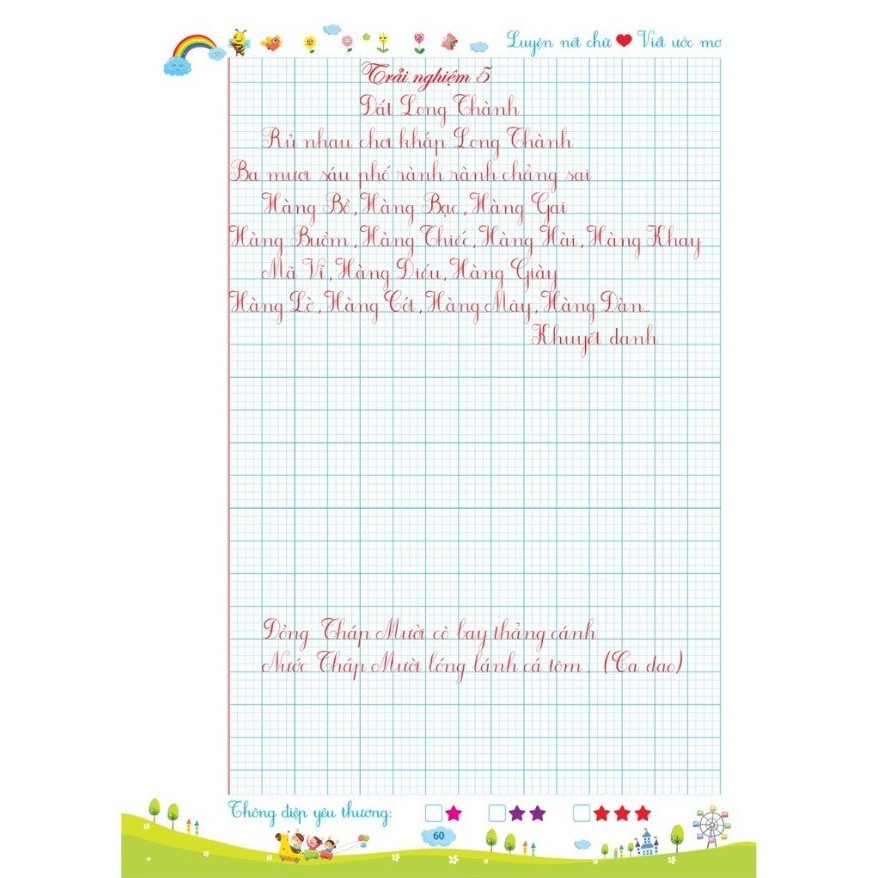 Luyện nét chữ ❤ Viết ước mơ
Trải nghiệm 5
Đất Long Thành
Rủ nhau chơi khắp Long Thành
Ba mươi sáu phố rành rành chẳng sai
Hàng Bồ, Hàng Bạc, Hàng Gai
Hàng Buồm, Hàng Thiếc, Hàng Hài, Hàng Khay
Mã Vĩ, Hàng Điếu, Hàng Giày
Hàng Lờ, Hàng Cót, Hàng Mây, Hàng Đàn...
Khuyết danh
Đồng Tháp Mười cò bay thẳng cánh
Nước Tháp Mười lóng lánh cá tôm. (Ca dao)
Thông điệp yêu thương:
60